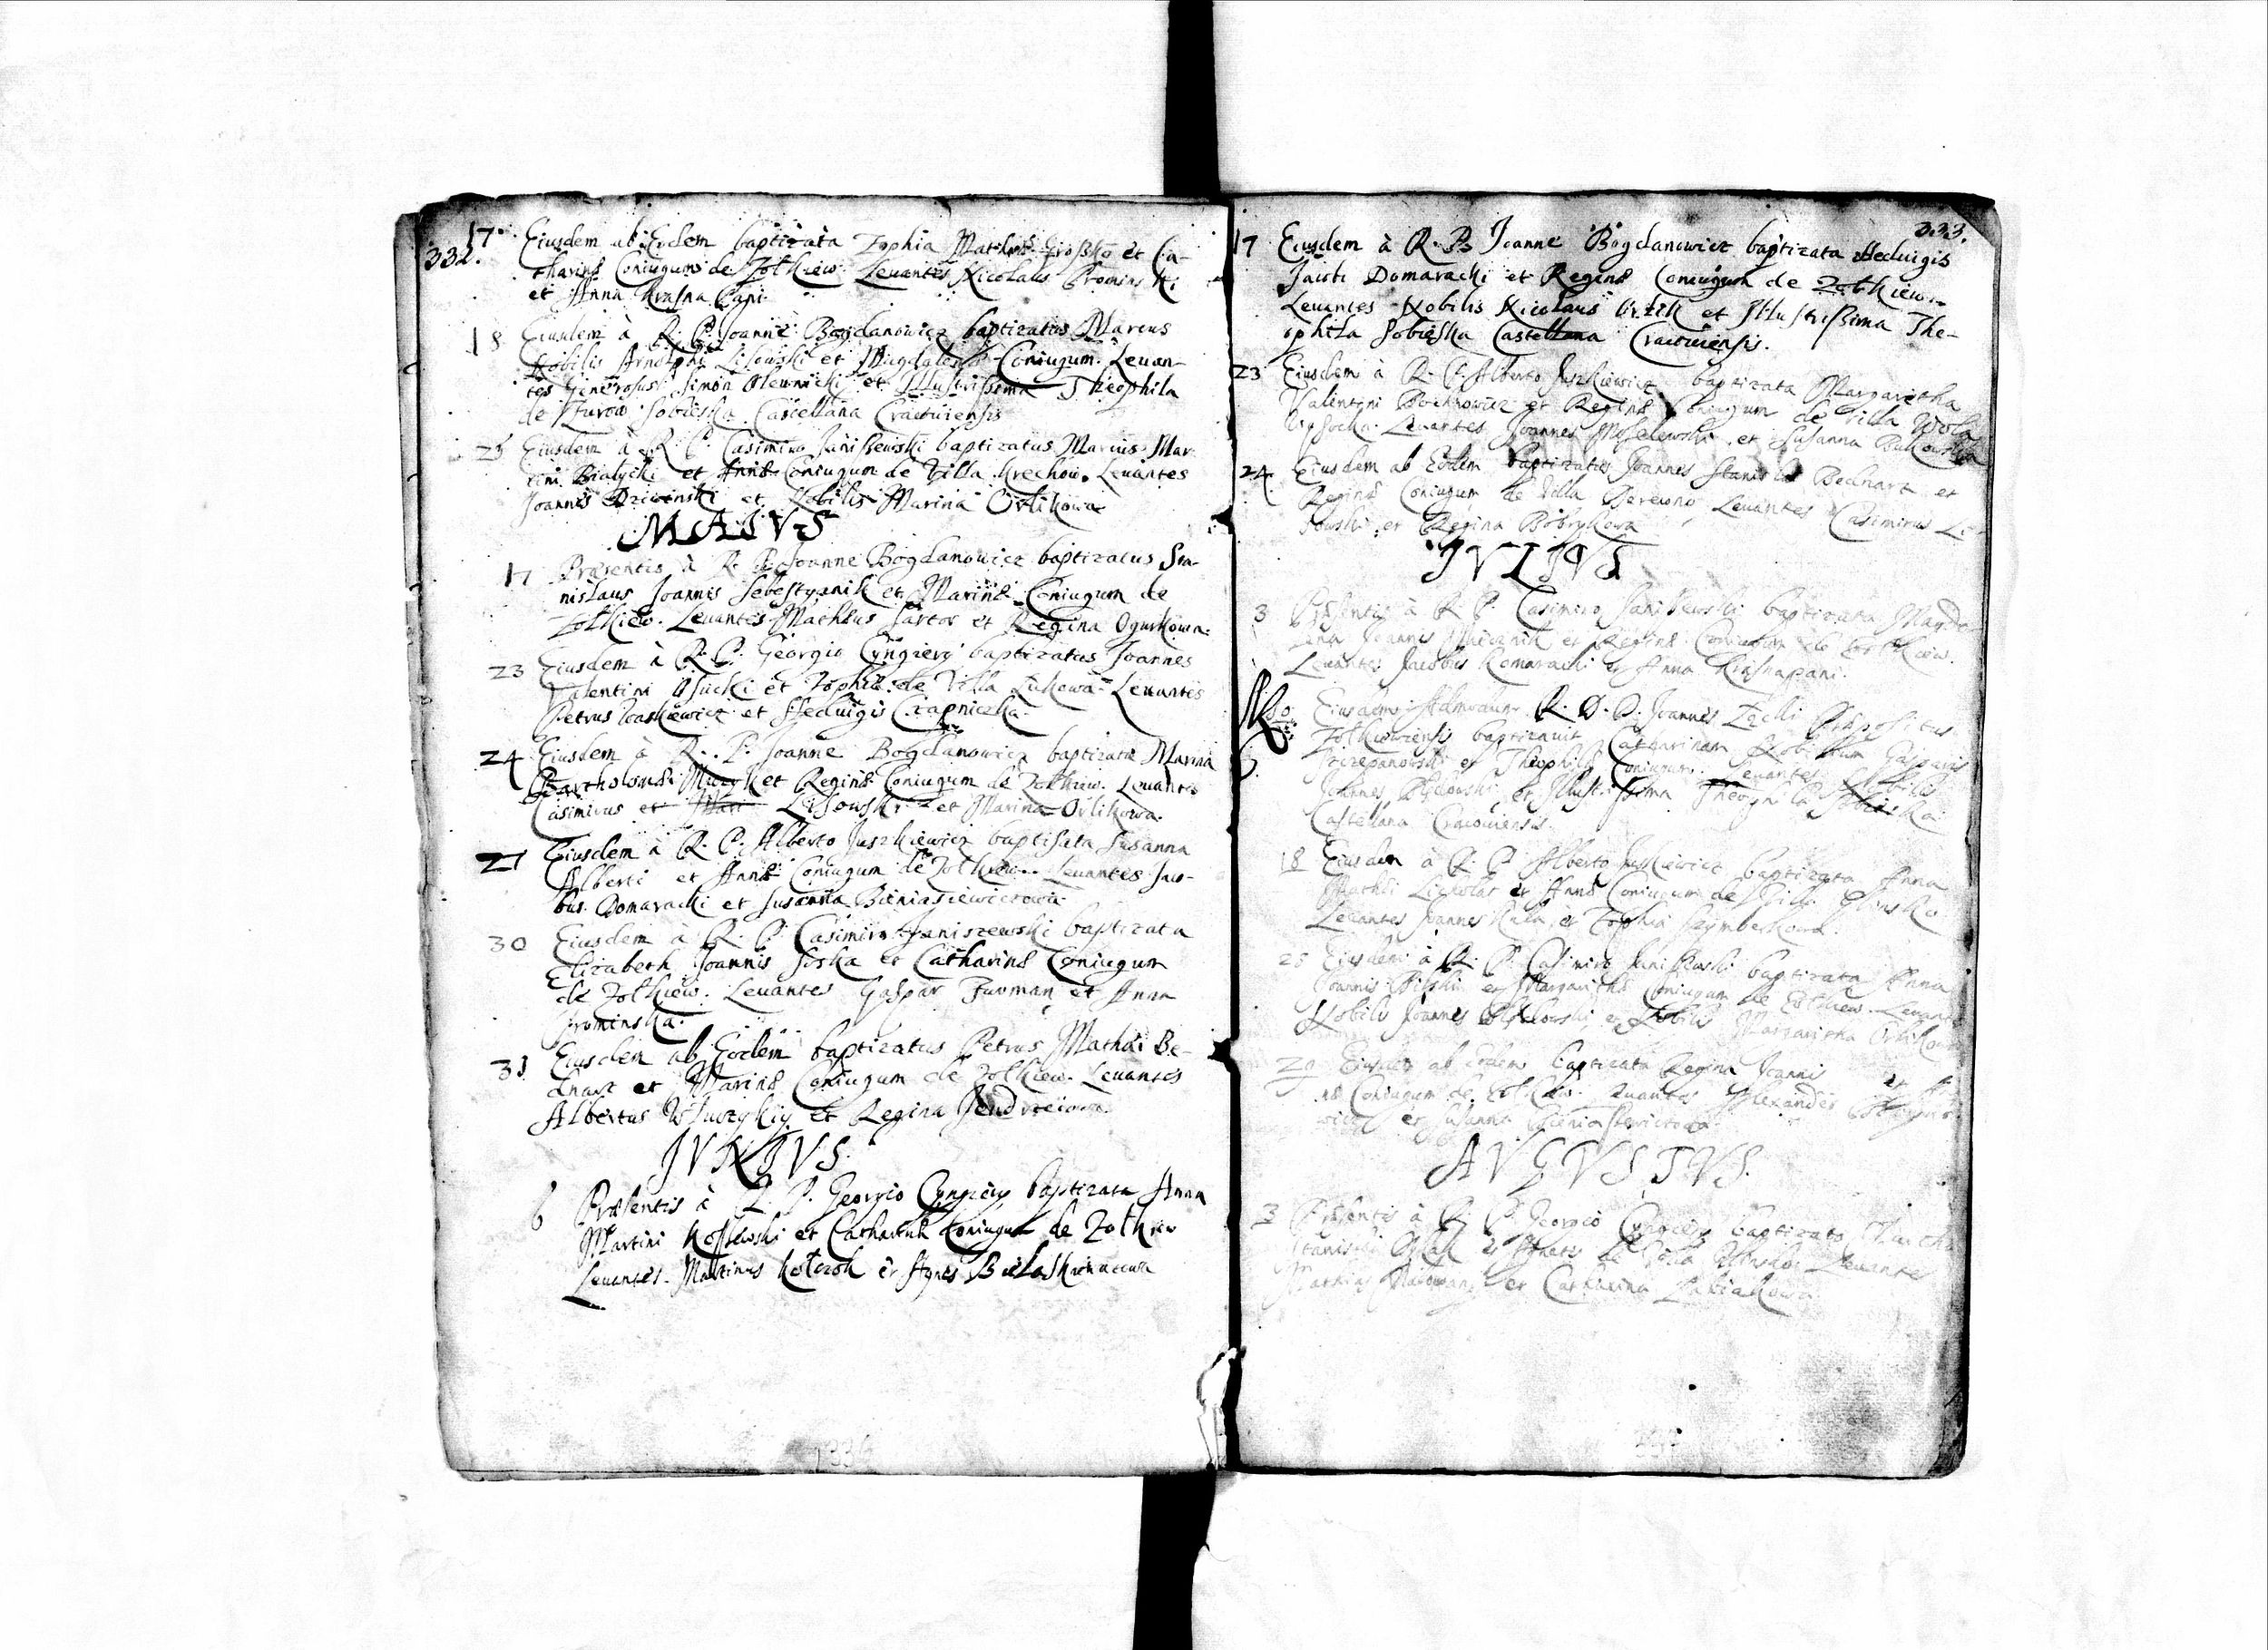 332.
17 Eiusdem ab Eodem baptizata Zophia Mathei Groszko et Ca-
tharinæ Coniugum de Zolkiew. Levantes Nicolaus Prominski
et Anna Krasna Pani.
18 Eiusdem à R. P. Joanne Bogdanowicz baptizatus Marcus
Nobilis Arnolphi Lisowski et Magdalenæ Coniugum. Levan-
tes Generosus Simon Olewnicki et Illustrissima Theophila
de Zurow Sobieska Castellana Cracoviensis
25 Eiusdem à R. P. Casimiro Janiszewski baptizatus Marcus Mar-
tini Bialycki et Annæ Coniugum de Villa Krechow. Levantes
Joannes Dziwinski et Nobilis Marina Orlikowa
MAIVS
17 Præsentis à R. P. Joanne Bogdanowicz baptizatus Sta-
nislaus Joannis Sebestyanik et Marinæ Coniugum de
Zolkiew. Levantes Mathæus Sartor et Regina Ogurkowa.
23 Eiusdem à R. P. Georgio Cyngiery baptizatus Joannes
Valentini Osucki et Zophiæ de Villa Zukowa Levantes
Petrus Waskiewicz et Hedvigis Czapniczka.
24 Eiusdem à R. P. Joanne Bogdanowicz baptizata Marina
Bartholomæi Muzyk et Reginæ Coniugum de Zolkiew. Levantes
Casimirus et Mari Lisowski et Marina Orlikowa.
27 Eiusdem à R. P. Alberto Juszkiewicz baptisata Susanna
Alberti et Annæ Coniugum de Zolkiew. Levantes Jaco-
bus Domaracki et Susanna Bieniasiewiczowa
30 Eiusdem a R. P. Casimiro Janiszewski baptizata
Elizabeth Joannis Soska et Catharinæ Coniugum
de Zolkiew. Levantes Gaspar Furman et Anna
Prominska.
31 Eiusdem ab Eodem baptizatus Petrus Mathæi Be-
dnarz et Marinæ Coniugum de Zolkiew. Levantes
Albertus et Regina Jendrzeiowa
JVNIVS.
6 Præsentis à R. P. Georgio Cyngiery baptizata Anna
Martini Koslewski et Catharinæ Coniugum de Zolkiew
Levantes. Martinus Kotczok et Agnes
333.
17 Eiusdem à R. P. Joanne Bogdanowicz baptizata Hedvigis
Jacobi Domaracki et Reginæ Coniugum de Zolkiew.
Levantes Nobilis Nicolaus Orlik et Illustrissima The-
ophila Sobieska Castellana Cracoviensis.
23 Eiusdem à R. P. Alberto Juszkiewicz baptizata Margaretha
Valentini Bochnowicz et Reginæ Coniugum de Villa Wola
Wysocka. Levantes Joannes et Susanna Bukowska
24 Eiusdem ab Eodem baptizatus Joannes Stanislai Bednarz et
Reginæ Coniugum de Villa Derewno Levantes Casimirus Li-
sowski et Regina Bobrykowa
JVLIVS
3 Præsentis à R. P. Casimiro Janiszewski baptizata Magda-
lena Joannis Miecznik et Reginæ Coniugum de Zolkiew.
Levantes Jacobus Komaracki et Anna Krasnapani.
10 Eiusdem Admodum R. D. D. Joannes Zecki Præpositus
Zolkieviensis baptizavit Catharinam Nobilium Gasparis
Szczepanowski et Theophilæ Coniugum. Levantes Nobilis
Joannes et Illustrissima Theophila Sobieska
Castellana Cracoviensis.
18 Eiusdem à R. P. Alberto Juszkiewicz baptizata Anna
Mathæi et Annæ Coniugum de Villa Glinsko
Levantes Joannes Kula et Zophia Szymberkowa.
25 Eiusdem à R. P. Casimiro Janiszewski baptizata Anna
Joannis et Margarithæ Coniugum de Zolkiew. Levantes
Nobilis Joannes et Nobilis Margaritha Orlikowa
29 Eiusdem ab Eodem baptizata Regina Joannis et An-
næ Coniugum de Zolkiew. Levantes Alexander
et Susanna
AVGVSTVS.
3 Præsentis à R. P. Georgio Cyngiery baptizata
Stanislai et Agnetis de Levantes
et Catharina